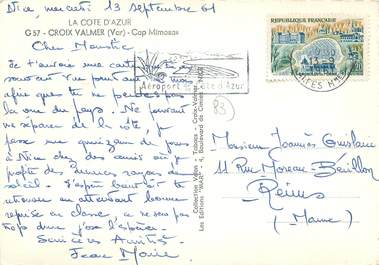 Nice mercredi 13 septembre 61
LA COTE D'AZUR
G 57 - CROIX VALMER (Var) - Cap Mimosas
Cher Moustic
Je t'envoie une carte
souvent vue pour
afin que tu ne perdes pas
la vue du pays. Ne pouvant
me séparer de la côte, je
passe une quinzaine de jours
à Nice chez des amis où je
profite des derniers rayons de
soleil. J'espère bientôt te
retrouver en attendant bonne
reprise en classe, ce ne sera pas
trop dur, je l'espère.
Sincères Amitiés
Jean Marie
Aéroport Nice Côte d'Azur
83
Collection Varoise - Tabacs - Croix-Valmer
Les Editions "MAR" - 4, Boulevard de Cimiez - NICE
REPUBLIQUE FRANÇAISE
13-9
Monsieur Joannès Guislain
51 Rue Moreau-Bérillon
Reims
(Marne)